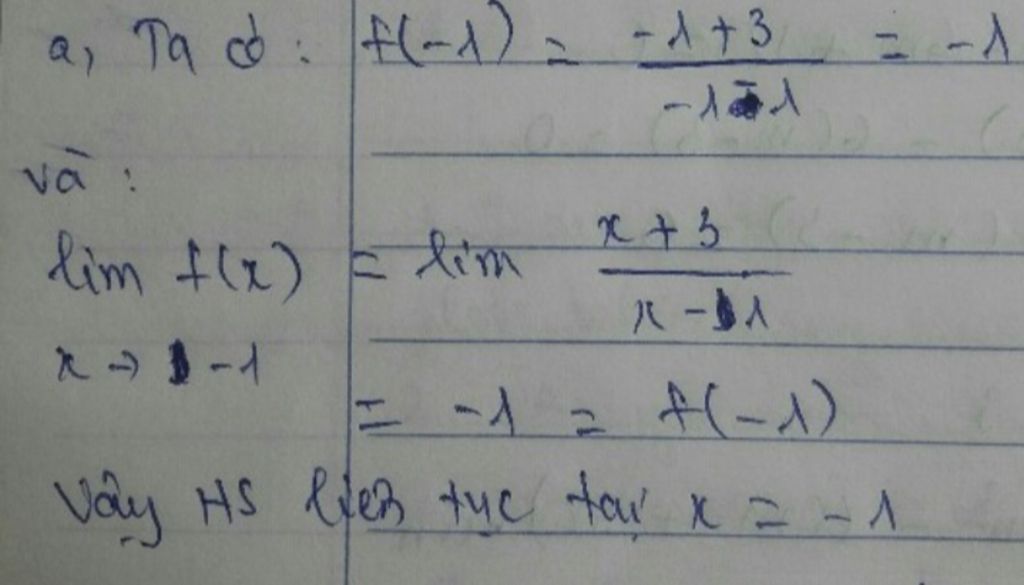 a, Ta có: f(-1) = \frac{-1+3}{-1-1} = -1
và:
lim f(x) = lim \frac{x+3}{x-1}
x → -1
= -1 = f(-1)
Vậy HS liên tục tại x = -1